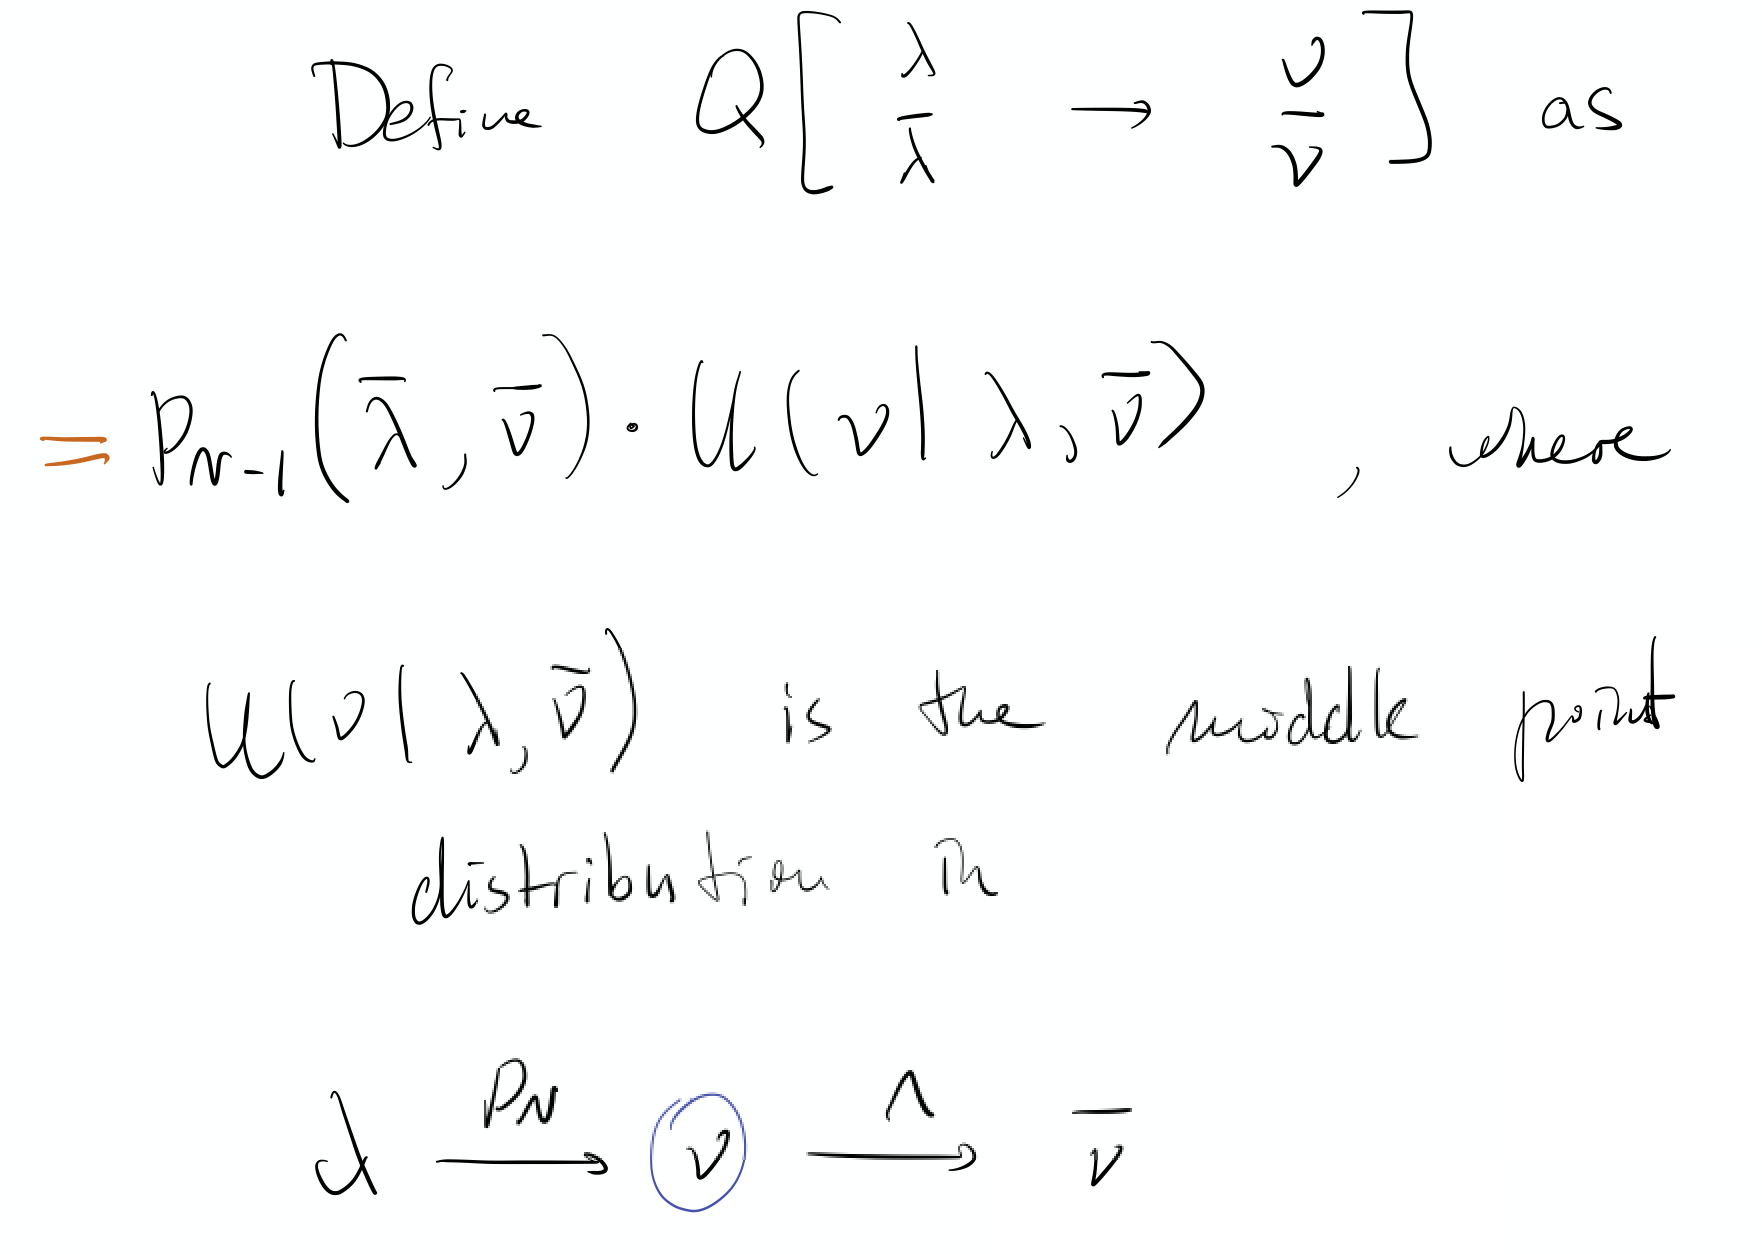 Define Q[ λ / λ̄ → ν / ν̄ ] as
= P_{N-1}(λ̄, ν̄) · U(ν | λ, ν̄), where
U(ν | λ, ν̄) is the middle point
distribution in
λ →^{P_N} ν →^{Λ} ν̄